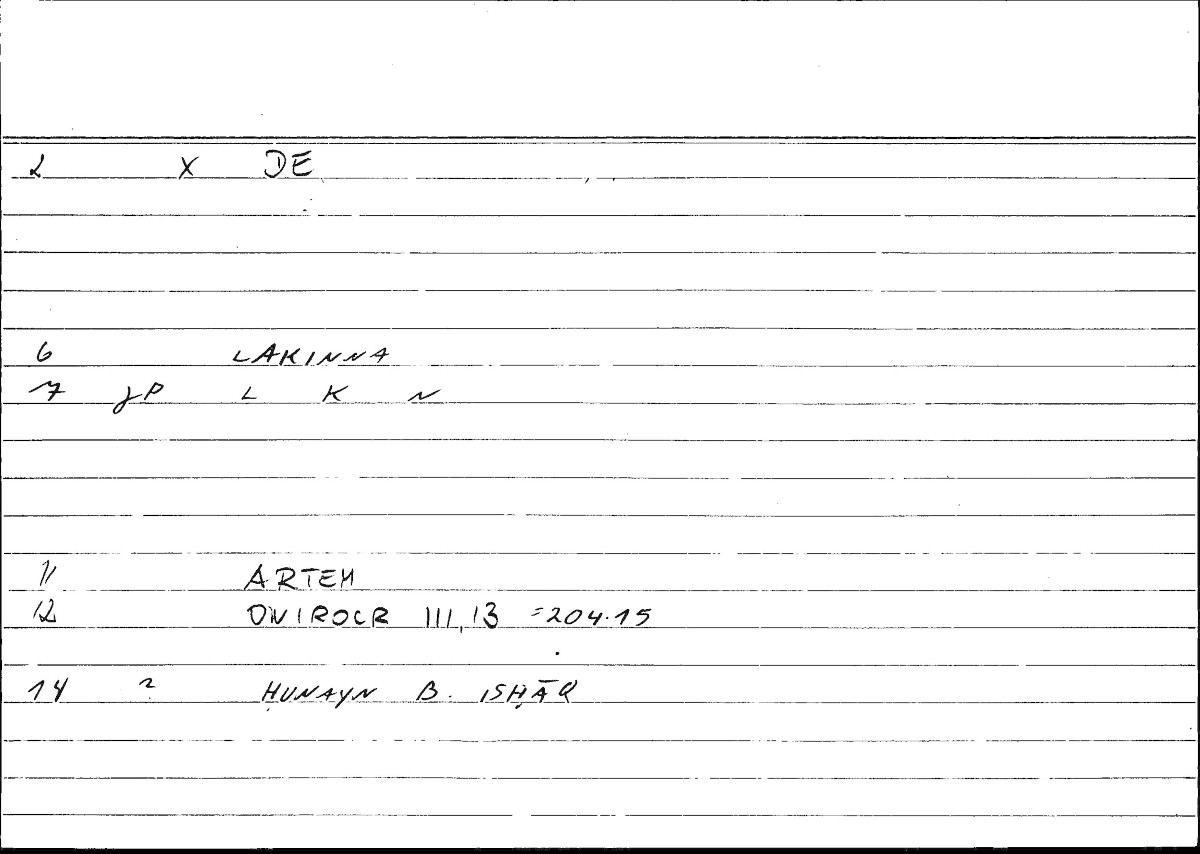 2 X DE
6 LAKINNA
7 JP L K N
11 ARTEM
12 ONIROCR III,13 =204.15
14 2 ḤUNAYN B. ISḤĀQ